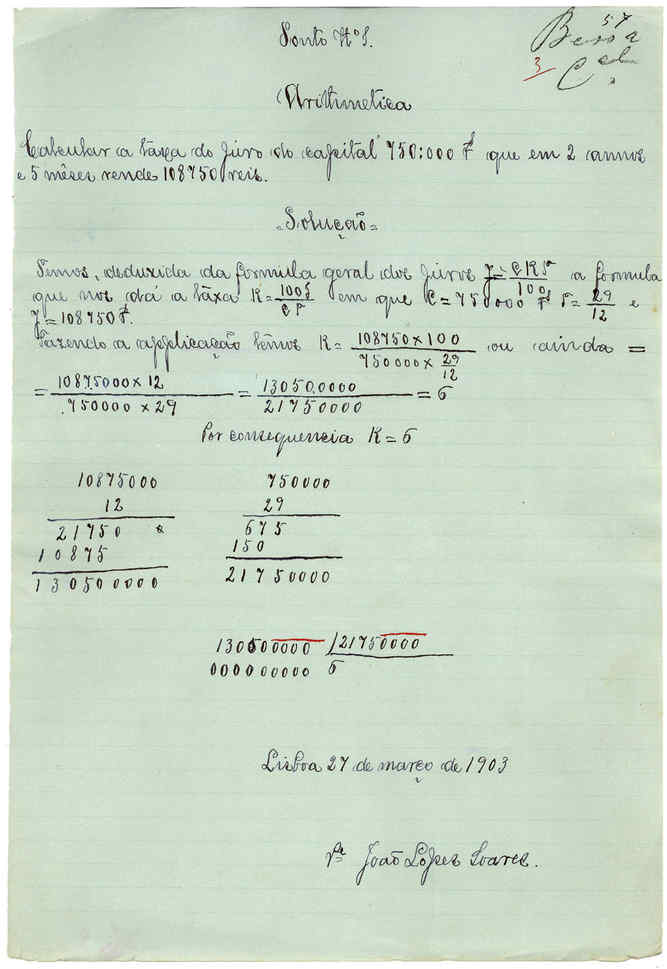 Ponto Nº 8.
57
Bessa
3
Arithmetica
Calcular a táxa do juro do capital 750:000 rs que em 2 annos
e 5 mêses rende 108750 reis.
=Solução=
Temos, deduzida da formula geral dos juros J = C R T / 100 a formula
que nos dá a táxa R = 100 J / C T em que C = 750000 rs T = 29/12 e
J = 108750 rs.
Fazendo a applicação têmos R = 108750 x 100 / 750000 x 29/12 ou ainda =
= 10875000 x 12 / 750000 x 29 = 130500000 / 21750000 = 6
Por consequencia R = 6
10875000 750000
12 29
21750 675
10875 150
130500000 21750000
130500000 | 21750000
000000000 6
Lisboa 27 de março de 1903
João Lopes Soares.